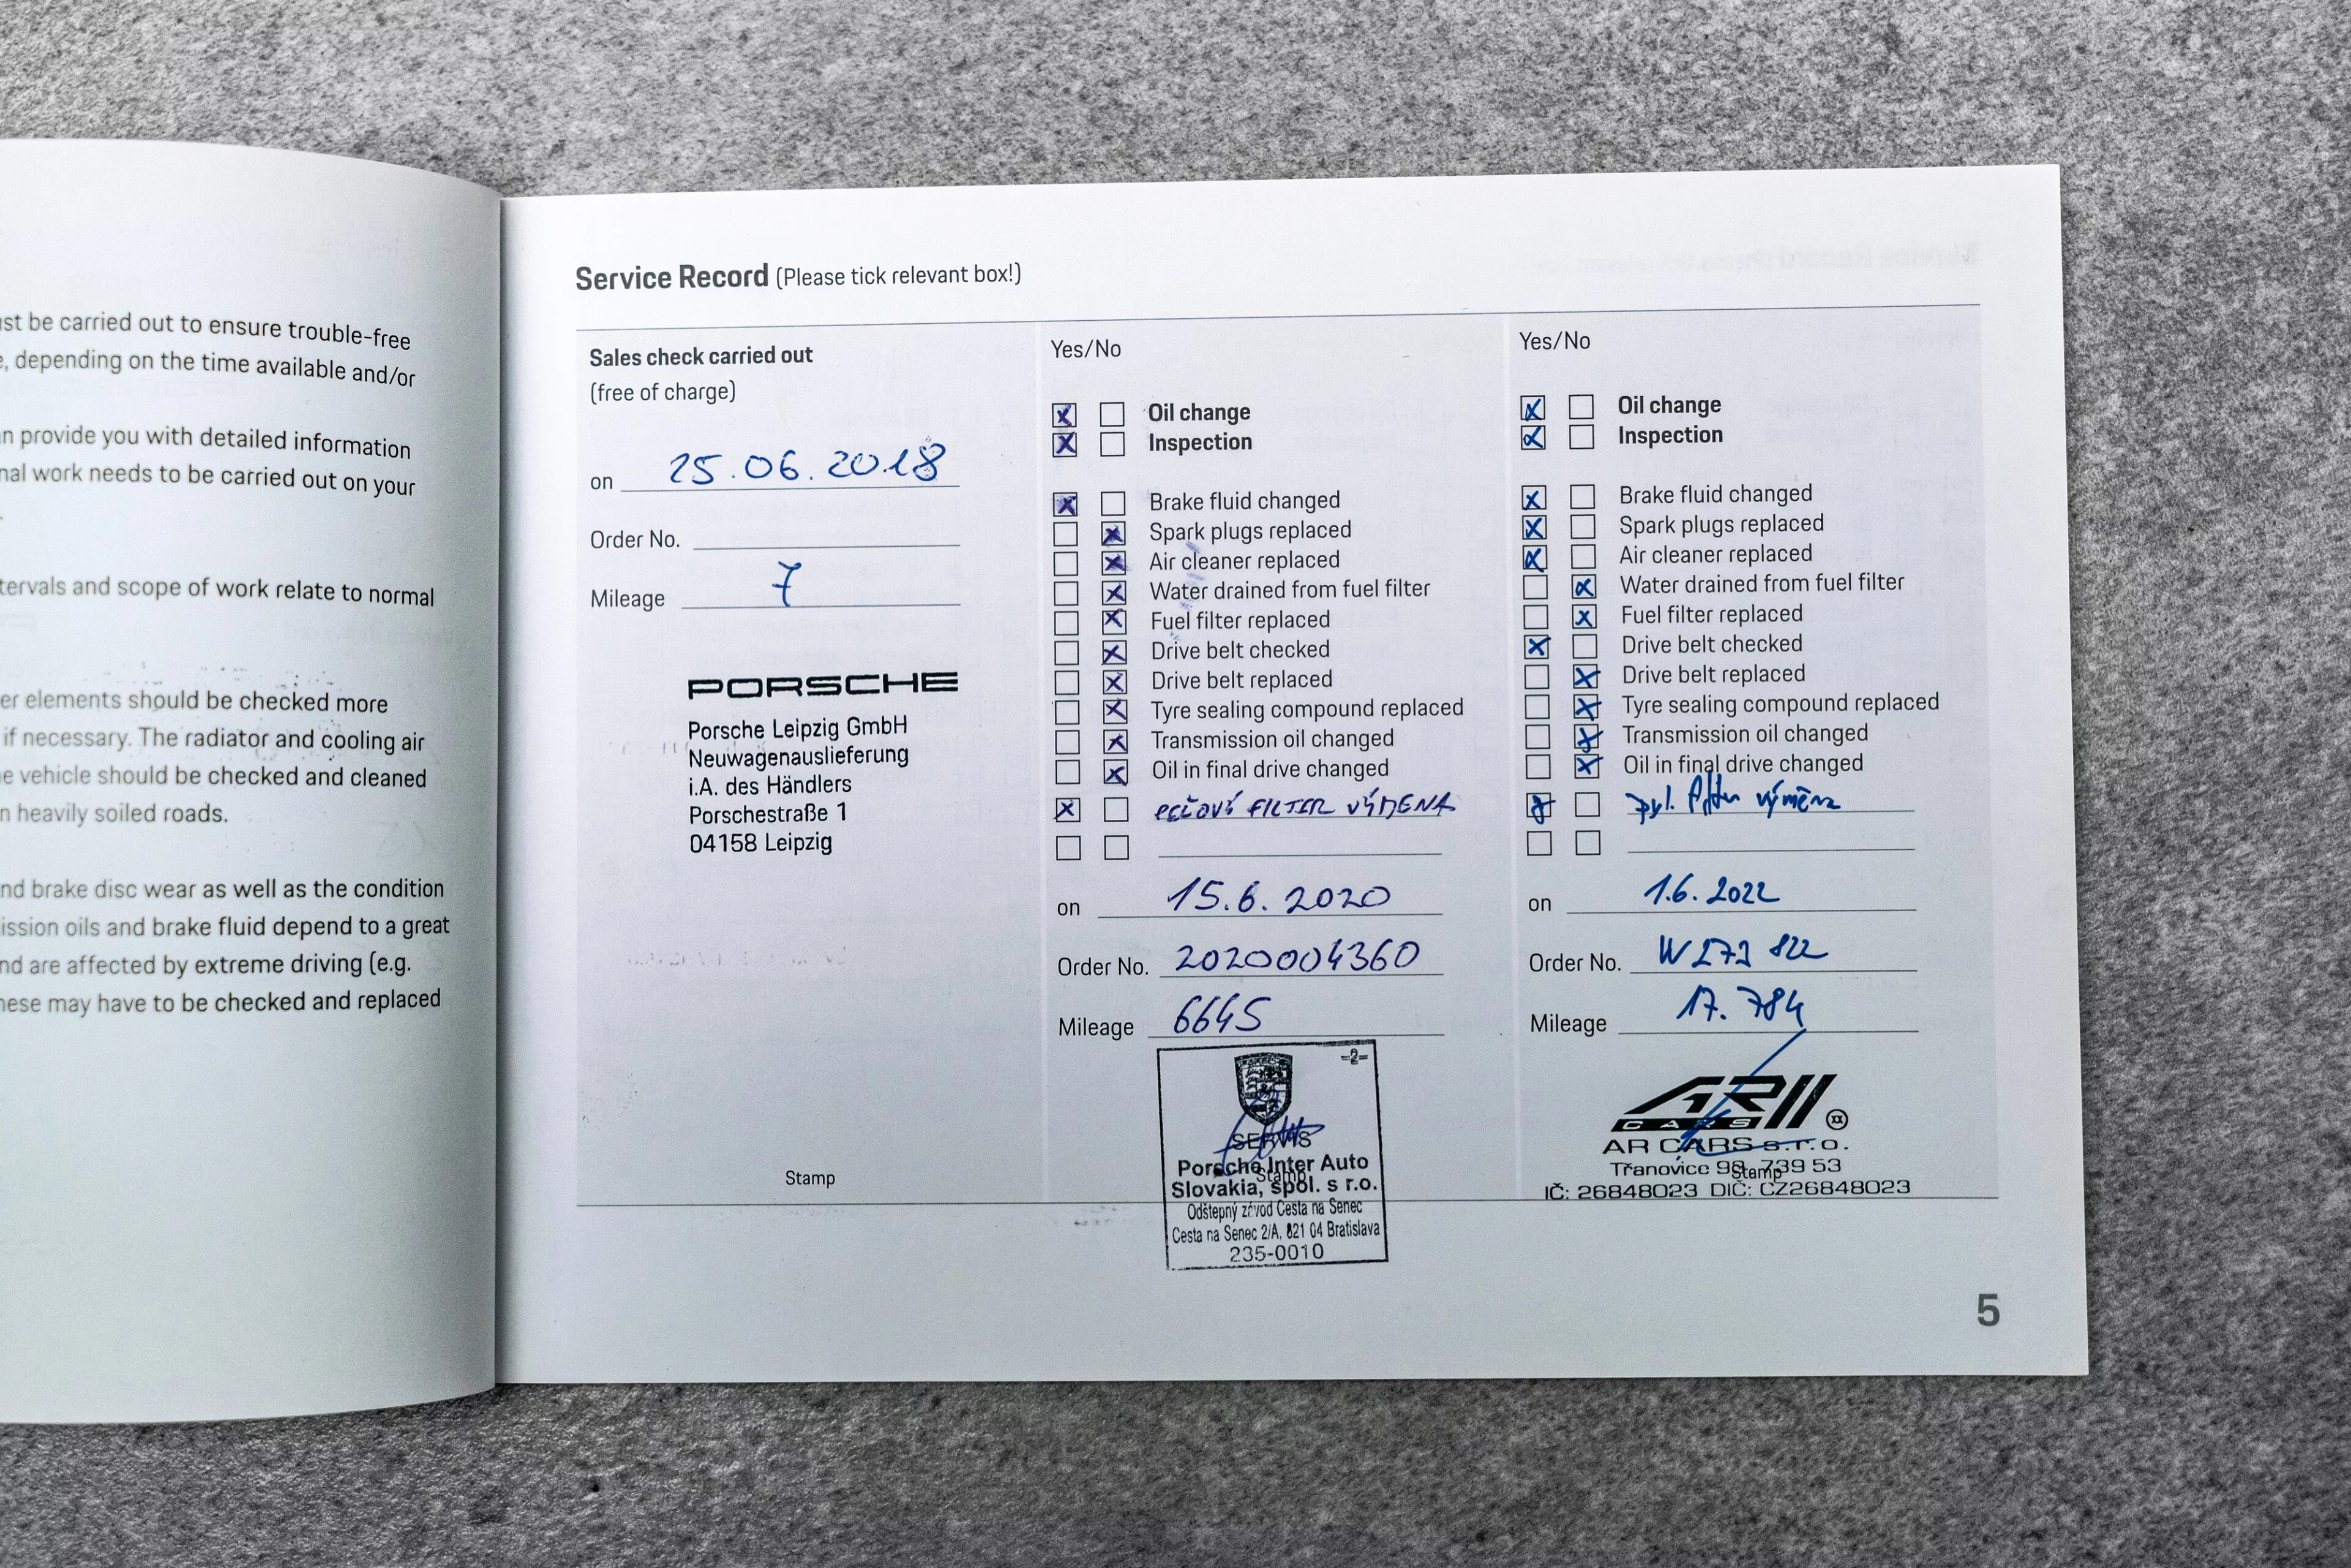 st be carried out to ensure trouble-free
, depending on the time available and/or
n provide you with detailed information
nal work needs to be carried out on your
.
tervals and scope of work relate to normal
er elements should be checked more
if necessary. The radiator and cooling air
e vehicle should be checked and cleaned
n heavily soiled roads.
nd brake disc wear as well as the condition
ission oils and brake fluid depend to a great
nd are affected by extreme driving (e.g.
hese may have to be checked and replaced
Service Record (Please tick relevant box!)
Sales check carried out
(free of charge)
on 25.06.2018
Order No.
Mileage 7
PORSCHE
Porsche Leipzig GmbH
Neuwagenauslieferung
i.A. des Händlers
Porschestraße 1
04158 Leipzig
Stamp
Yes/No
Oil change
Inspection
Brake fluid changed
Spark plugs replaced
Air cleaner replaced
Water drained from fuel filter
Fuel filter replaced
Drive belt checked
Drive belt replaced
Tyre sealing compound replaced
Transmission oil changed
Oil in final drive changed
FILTER VÝMENA
on 15.6.2020
Order No. 2020004360
Mileage 6645
-2-
SERVIS
Porsche Inter Auto
Slovakia, spol. s r.o.
Odštepný závod Cesta na Senec
Cesta na Senec 2/A, 821 04 Bratislava
235-0010
Stamp
Yes/No
Oil change
Inspection
Brake fluid changed
Spark plugs replaced
Air cleaner replaced
Water drained from fuel filter
Fuel filter replaced
Drive belt checked
Drive belt replaced
Tyre sealing compound replaced
Transmission oil changed
Oil in final drive changed
pyl. filtr výměna
on 1.6.2022
Order No.
Mileage 17.784
AR
CARS
AR CARS s.r.o.
Třanovice 98, 739 53
IČ: 26848023 DIČ: CZ26848023
Stamp
5